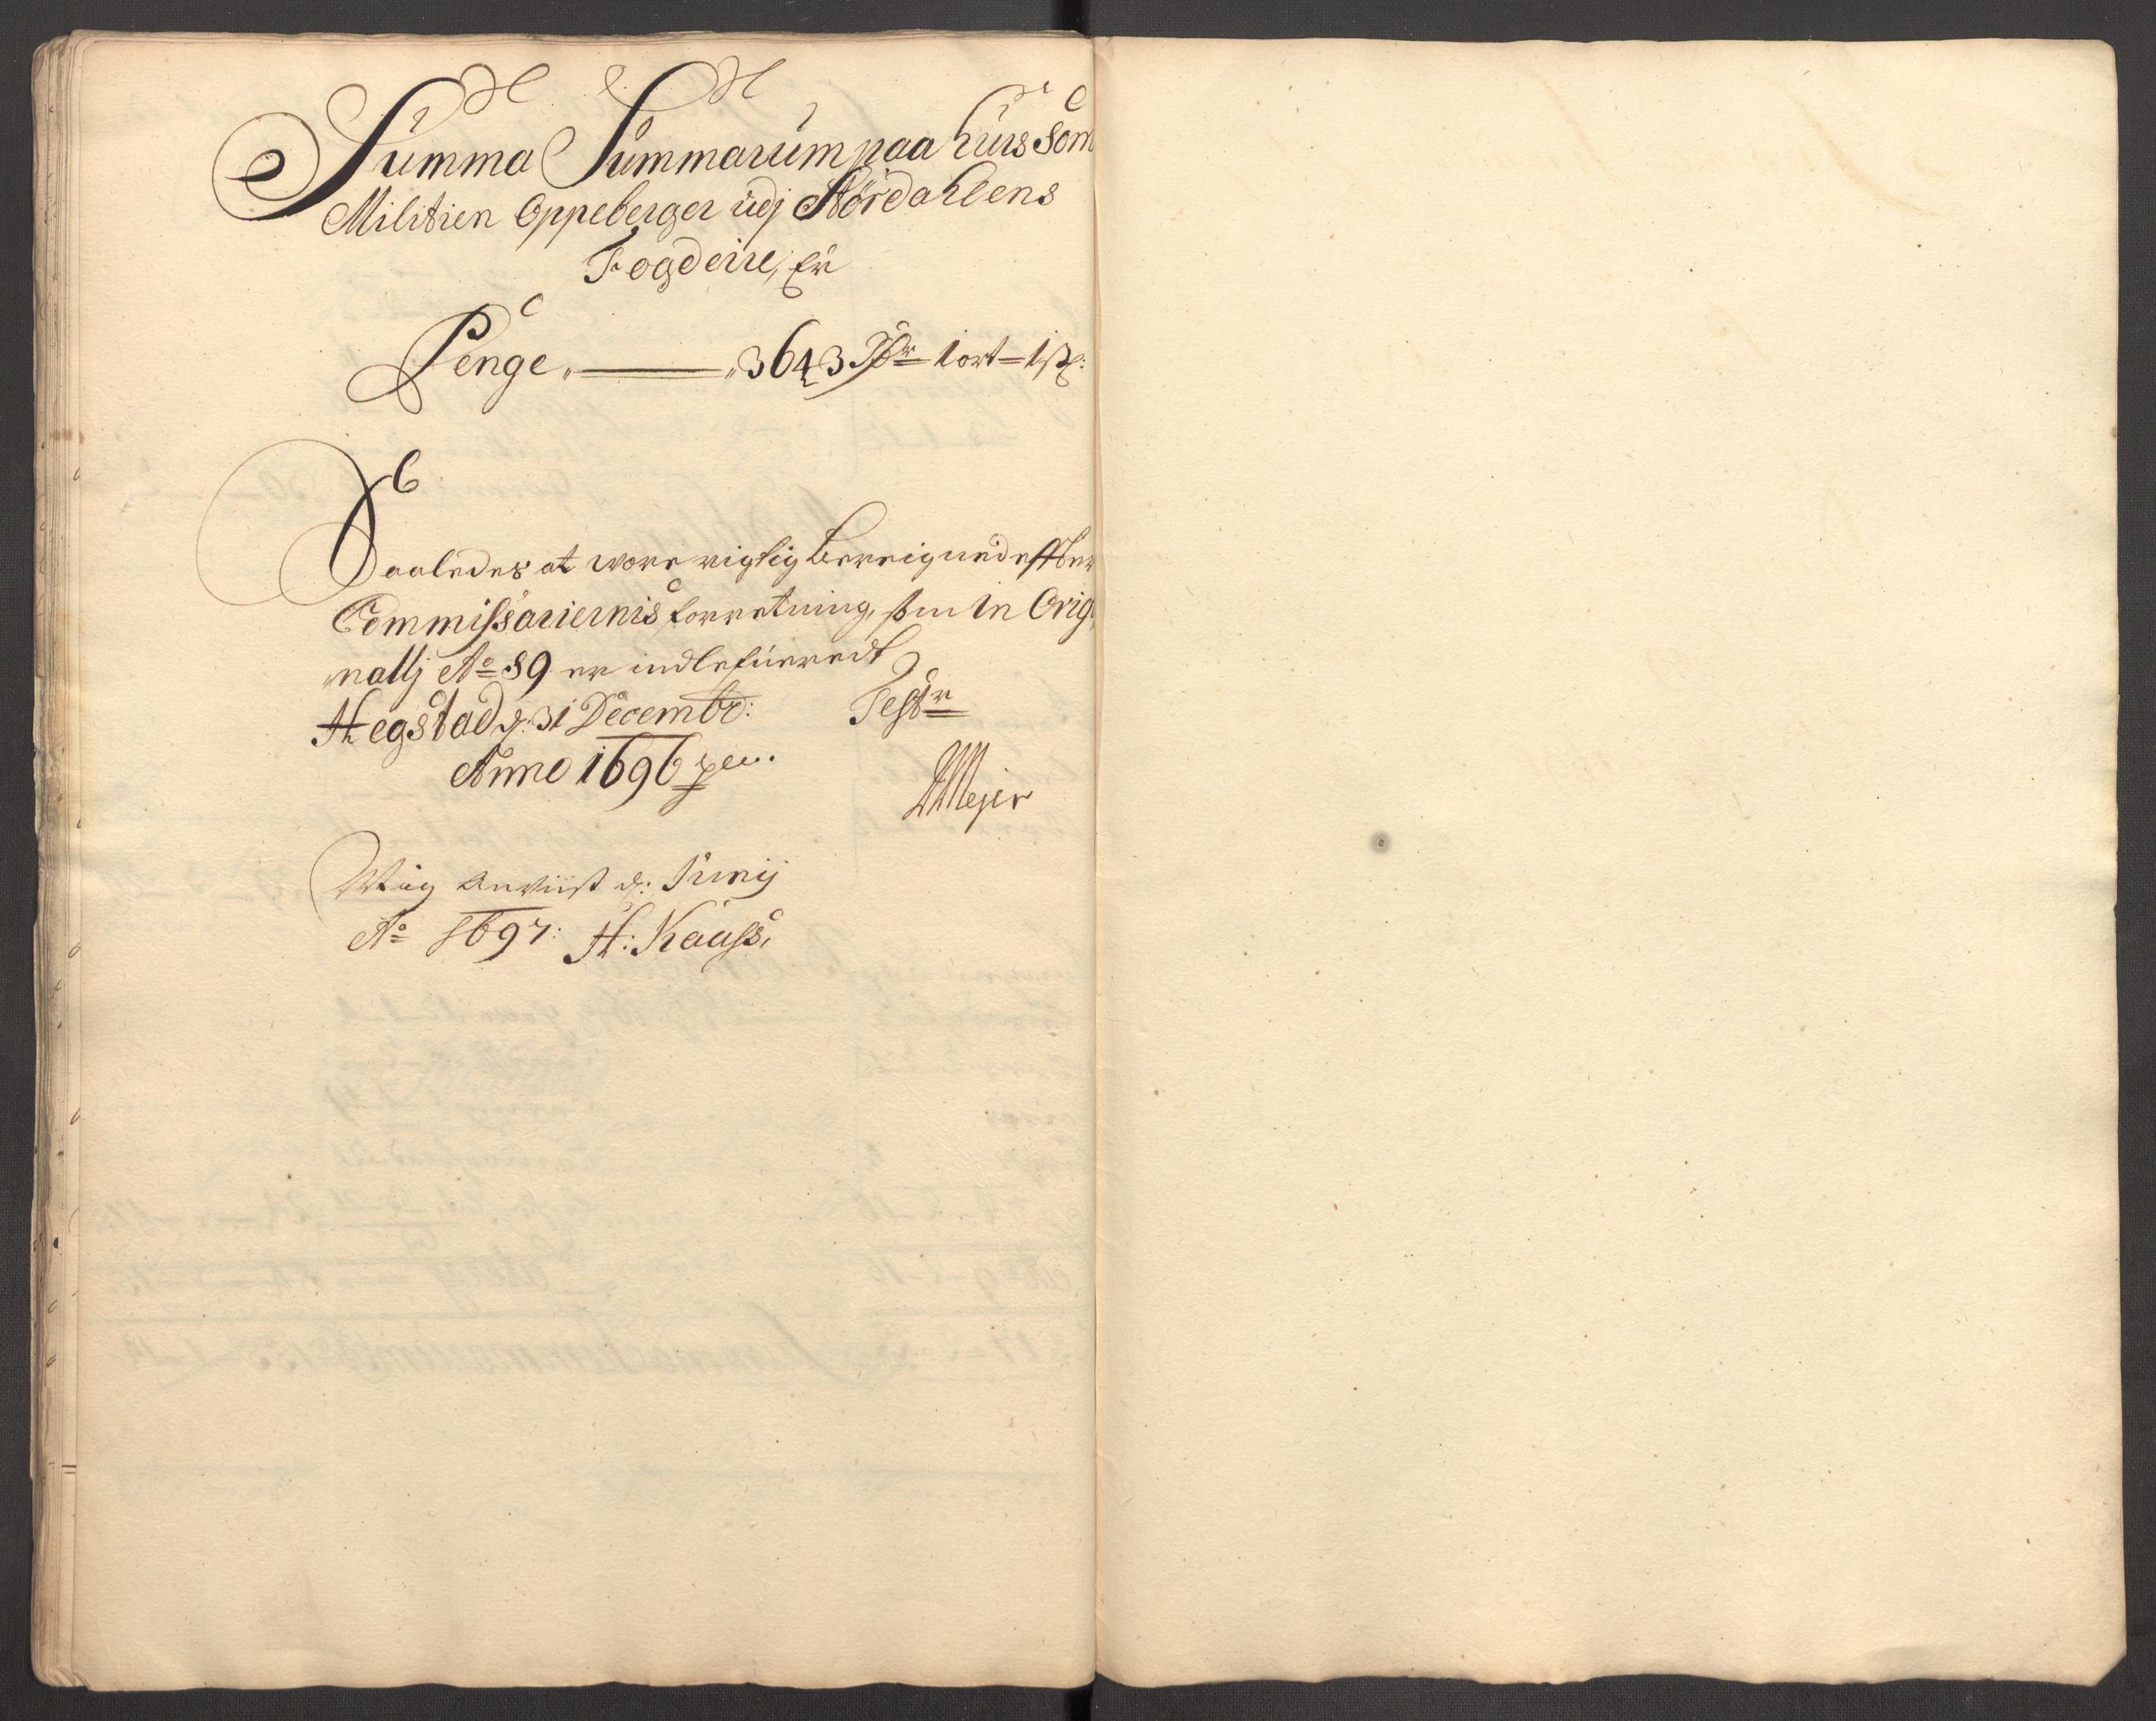 Summa Summarum paa huis Som
Militien Oppeberger udj Størdahlens
Fogderie, Er
Penge„ „3643 Rdr 1 ort = 1 sk:
Saaledes at være rigtig Bereignet effter
Commissariernis forretning, som in Origi
„nallj Ao 89 er indlefueredt
Hegstad d: 31 Decembr: Test:
Anno 1696
Meyer
Mig Anviist d: Junij
Ao 1697: H: Kaass,